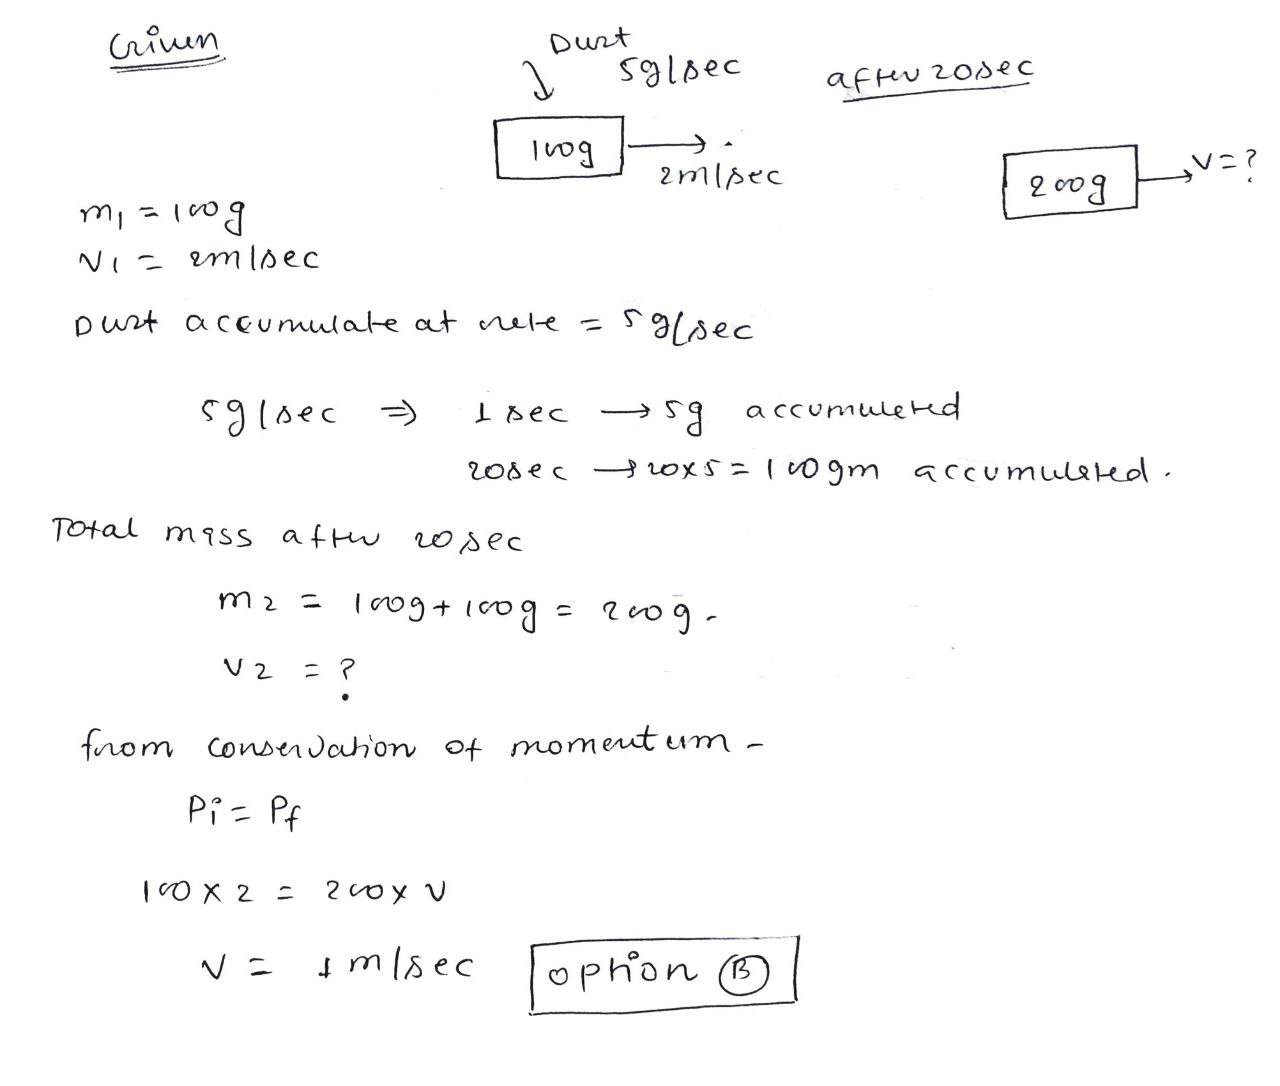 Given
Dust
5g/sec
after 20sec
100g
2m/sec
200g
V=?
m1 = 100g
V1 = 2m/sec
Dust accumulate at rate = 5g/sec
5g/sec ⇒ 1 sec → 5g accumulated
20sec → 20x5 = 100gm accumulated.
Total mass after 20sec
m2 = 100g + 100g = 200g.
V2 = ?
from conservation of momentum -
Pi = Pf
100 x 2 = 200 x V
V = 1 m/sec
option B